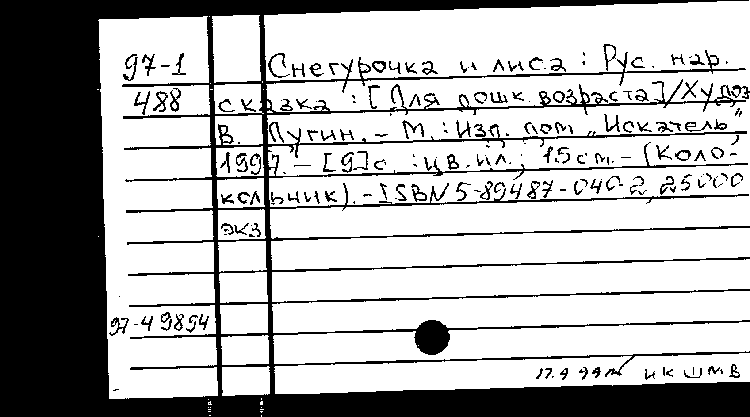 97-1 Снегурочка и лиса : Рус. нар.
488 сказка : [Для дошк. возраста] / Худож.
В. Лугин. - М. : Изд. дом „Искатель",
1997. - [9] с. : цв. ил. ; 15 см. - (Коло-
кольчик). - ISBN 5-89487-040-2, 25000
экз
97-49894
17.9 99 НК ШМВ